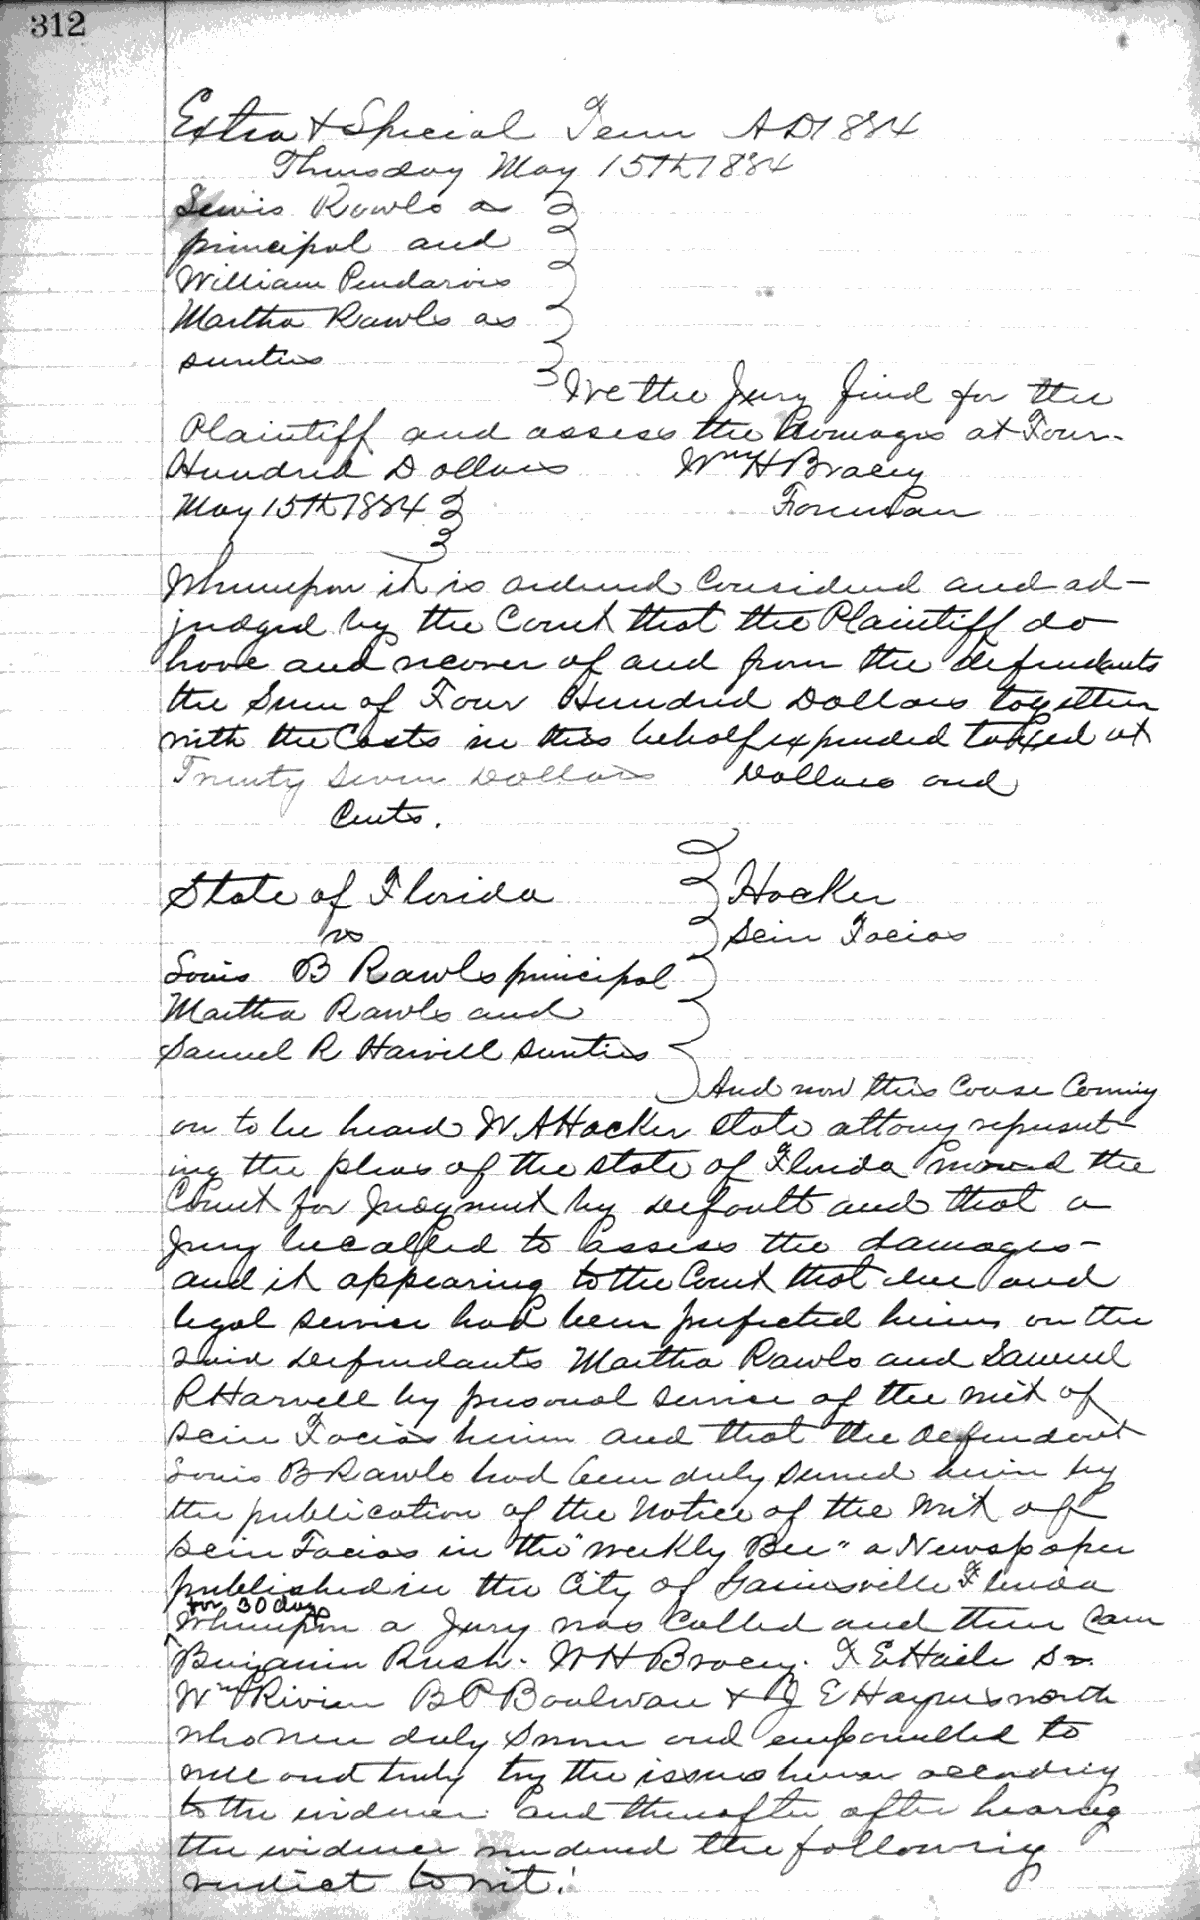 312
Extra & Special Term AD 1884
Thursday May 15th 1884
Lewis Rawls as
principal and
William Pendarvis
Martha Rawls as
sureties
We the Jury find for the
Plaintiff and assess the Damages at Four
Hundred Dollars Wm H Bracey
May 15th 1884 Foreman
Whereupon it is ordered Considered and ad-
judged by the Court that the Plaintiff do
have and recover of and from the defendants
the Sum of Four Hundred Dollars together
with the Costs in this behalf expended taxed at
Twenty Seven Dollars Dollars and
Cents.
State of Florida Hocker
vs Scire Facias
Louis B Rawls principal
Martha Rawls and
Samuel R Harvell sureties
And now this Cause Coming
on to be heard W A Hocker State attorny represent-
ing the pleas of the State of Florida moved the
Court for Judgment by Default and that a
Jury be called to assess the damages -
and it appearing to the Court that due and
legal service had been perfected herein on the
said Defendants Martha Rawls and Samuel
R Harvell by personal service of the writ of
Scire Facias herein and that the Defendant
Louis B Rawls had been duly served herein by
the publication of the Notice of the Writ of
Scire Facias in the "weekly Bee" a Newspaper
published in the City of Gainesville Florida
for 30 days
Whereupon a Jury was Called and then Came
Benjamin Rush. W H Bracey. T E Haile Sr.
Wm Rivien B P Boulware & J E Haynesworth
who were duly sworn and empanelled to
well and truly try the issues herein according
to the evidence and thereafter after hearing
the evidence rendered the following
verdict to wit: